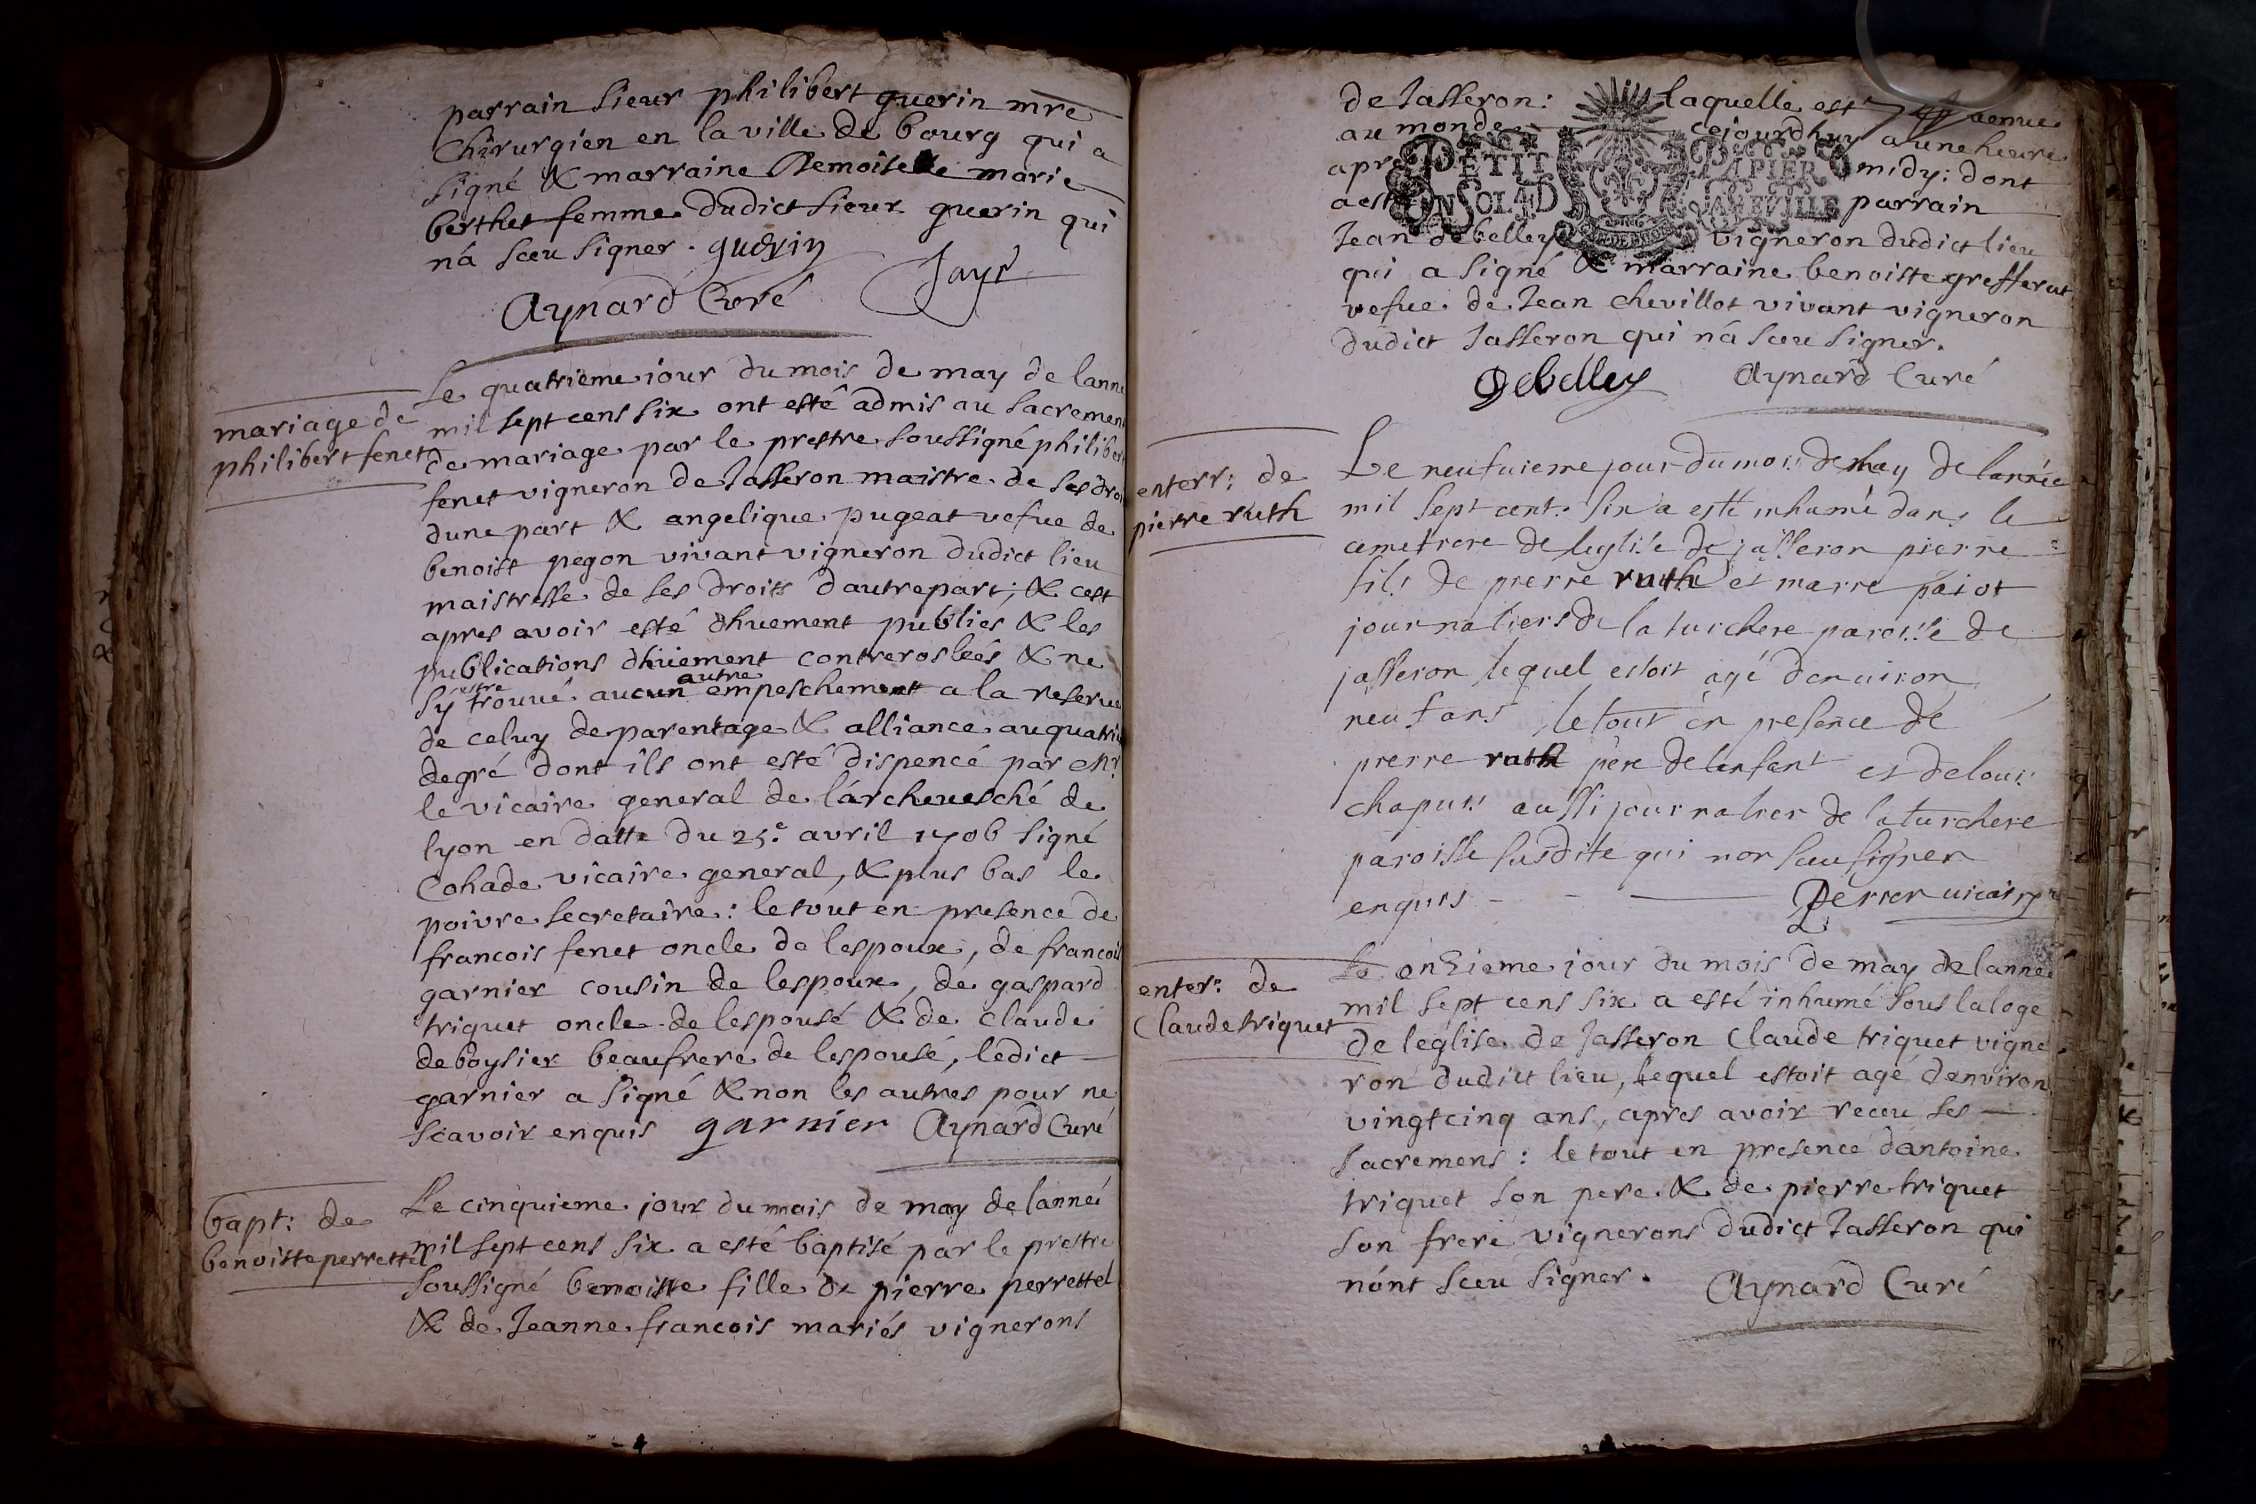 parrain sieur philibert guerin mre
chirurgien en la ville de bourg qui a
signé & marraine Demoiselle marie
berthet femme dudict sieur guerin qui
ná sceu signer . guerin
Jayr
Aynard Curé
mariage de
philibert fenet
Le quatrieme iour du mois de may de lanne
mil sept cens six ont esté admis au sacrement
de mariage par le prestre soussigné philibert
fenet vigneron de Jasseron maistre de ses droi
dune part & angelique pugeat vefue de
benoist pegon vivant vigneron dudict lieu
maistresse de ses droits dautrepart ; & cest
apres avoir esté dhuement publies & les
publications dhuement controrosleés & ne
sÿ estre trouvé aucun autre empeschement a la reserue
de celuy de parentage & alliance au quatrie
degré dont ils ont esté dispencé par Mr
le vicaire general de lárchevesché de
lyon en datte du 25e avril 1706 signé
Cohade vicaire general, & plus bas le
poivre secretaire : le tout en presence de
francois fenet oncle de lespoux, de francois
garnier cousin de lespoux, de gaspard
triquet oncle de lespousé & de claude
deboysier beaufrere de lespousé, ledict
garnier a signé & non les autres pour ne
scavoir enquis garnier Aynard Curé
bapt: de
benoistte perrettel
Le cinquieme jour du mois de may de lanneé
mil sept cens six a esté baptisé par le prestre
soussigné benoistte fille de pierre perrettel
& de Jeanne francois mariés vignerons
de Jasseron : laquelle est venue
au monde cejourdhuy a une heure
apr midy : dont
a esté parrain
PETIT PAPIER
Jean debelley vigneron dudict lieu
qui a signé & marraine benoiste grefferat
vefue de Jean chevillot vivant vigneron
dudict Jasseron qui ná sceu signer.
Debelley Aynard Curé
enterr: de
pierre ruth
Le neufuieme jour du mois de may de lannée
mil sept cent six a esté inhumé dans le
cemetiere de leglise de jasseron pierre
fils de pierre ruth et marie paiot
journaliers de la turchere paroisse de
jasseron lequel estoit agé denuiron
neuf ans le tout en presence de
pierre ruth pere de lenfant et de louis
chapuis aussi journalier de la turchere
paroisse susdite qui non sceu signer
enquis - - Perrer uicaire
enterr: de
Claude triquet
Le onzieme jour du mois de may de lanneé
mil sept cens six a esté inhumé sous laloge
de leglise de Jasseron Claude triquet vigne
ron dudict lieu, lequel estoit agé denviron
vingt cinq ans, apres avoir receu ses
sacremens : le tout en presence dantoine
triquet son pere & de pierre triquet
son frere vignerons dudict Jasseron qui
nónt sceu signer. Aynard Curé